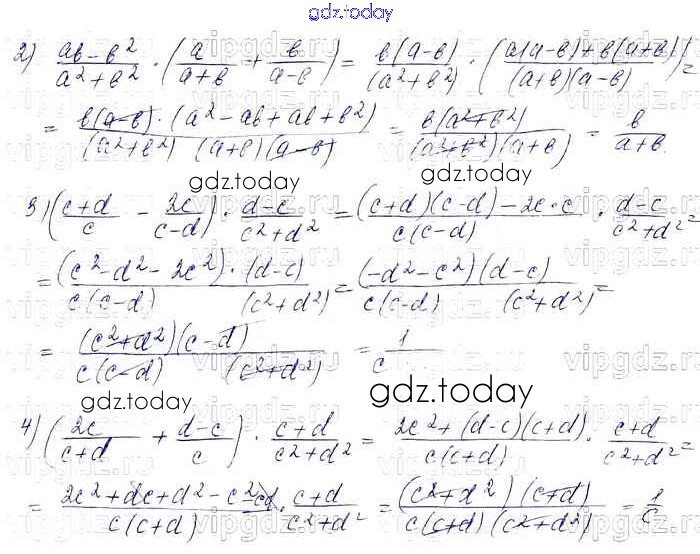 gdz.today
2) (ab-b²)/(a²+b²) · (a/(a+b) + b/(a-b)) = b(a-b)/(a²+b²) · (a(a-b)+b(a+b))/((a+b)(a-b)) =
= b(a-b)·(a²-ab+ab+b²)/((a²+b²)(a+b)(a-b)) = b(a²+b²)/((a²+b²)(a+b)) = b/(a+b).
gdz.today
3) ((c+d)/c - 2c/(c-d)) · (d-c)/(c²+d²) = ((c+d)(c-d)-2c·c)/(c(c-d)) · (d-c)/(c²+d²) =
= (c²-d²-2c²)·(d-c)/(c(c-d)(c²+d²)) = (-d²-c²)(d-c)/(c(c-d)(c²+d²)) =
= (c²+d²)(c-d)/(c(c-d)(c²+d²)) = 1/c
gdz.today
gdz.today
4) (2c/(c+d) + (d-c)/c) · (c+d)/(c²+d²) = (2c²+(d-c)(c+d))/(c(c+d)) · (c+d)/(c²+d²) =
= (2c²+dc+d²-c²-cd)/(c(c+d)) · (c+d)/(c²+d²) = (c²+d²)(c+d)/(c(c+d)(c²+d²)) = 1/c